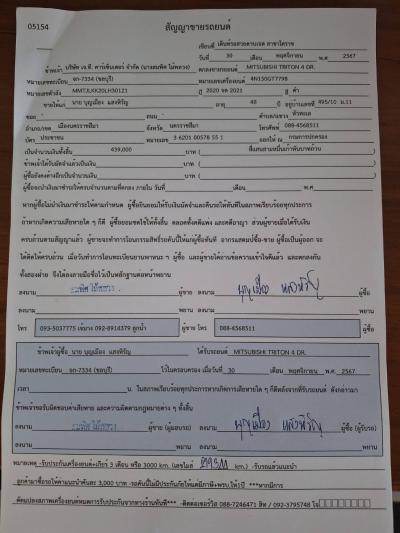 05154
สัญญาขายรถยนต์
เขียนที่ เต็นท์รถสวยตามเจต สาขาโคราช
วันที่ 30 เดือน พฤศจิกายน พ.ศ 2567
ข้าพเจ้า บริษัท เจ.ที. คาร์เซ็นเตอร์ จำกัด (นางสมพิศ ไม้หลวง) ตกลงขายรถยนต์ MITSUBISHI TRITON 4 DR.
หมายเลขทะเบียน จก-7334 (ชลบุรี) หมายเลขเครื่องยนต์ 4N15GT7798
หมายเลขตัวถัง MMTJLKK20LH30121 ปี 2020 จด 2021 สี ดำ
ขายให้แก่ นาย บุญเมือง แสงหิรัญ อายุ 48 ปี อยู่บ้านเลขที่ 495/10 ม.11
ซอย - ถนน - ตำบล/แขวง หัวทะเล
อำเภอ/เขต เมืองนครราชสีมา จังหวัด นครราชสีมา โทรศัพท์ 088-4568511
บัตร ประชาชน หมายเลข 3 6201 00578 55 1 ออกให้ ณ กรมการปกครอง
เป็นจำนวนเงินทั้งสิ้น 439,000 บาท ( สี่แสนสามหมื่นเก้าพันบาทถ้วน )
ข้าพเจ้าได้รับมัดจำแล้วเป็นเงิน บาท (
ผู้ซื้อยังคงค้างอีกเป็นจำนวนเงิน บาท (
ผู้ซื้อจะนำเงินมาชำระให้ครบจำนวนตามที่ตกลง ภายใน วันที่ เดือน พ.ศ
หากผู้ซื้อไม่นำเงินมาชำระให้ตามกำหนด ผู้ซื้อยินยอมให้ริบเงินมัดจำและคืนรถให้ทันทีในสภาพเรียบร้อยทุกประการ
ถ้าหากเกิดความเสียหายใด ๆ ก็ดี ผู้ซื้อยอมชดใช้ให้ทั้งสิ้น ตลอดทั้งคดีแพ่ง และคดีอาญา ส่วนผู้ขายเมื่อได้รับเงิน
ครบถ้วนตามสัญญาแล้ว ผู้ขายจะทำการโอนกรรมสิทธิ์รถคันนี้ให้แก่ผู้ซื้อทันที
ทั้งสองฝ่าย จึงได้ลงลายมือชื่อไว้เป็นหลักฐานต่อหน้าพยาน
ลงนาม ผู้ขาย ลงนาม บุญเมือง แสงหิรัญ ผู้ซื้อ
ลงนาม พยาน ลงนาม พยาน
โทร 093-5037775 เจ้นาง 092-8914379 ลูกน้ำ ผู้ขาย โทร 088-4568511 ผู้ซื้อ
ข้าพเจ้าผู้ซื้อ นาย บุญเมือง แสงหิรัญ ได้รับรถยนต์ MITSUBISHI TRITON 4 DR.
หมายเลขทะเบียน จก-7334 (ชลบุรี) ไว้ในครอบครอง เมื่อวันที่ 30 เดือน พฤศจิกายน พ.ศ. 2567
เวลา น. ในสภาพเรียบร้อยทุกประการหากเกิดการเสียหายใด ๆ ก็ดีหลังจากที่รับรถยนต์ ดังกล่าวมา
ข้าพเจ้าขอรับผิดชอบค่าเสียหาย และความผิดตามกฎหมายต่าง ๆ ทั้งสิ้น
ลงนาม ผู้ขาย (ผู้มอบรถ) ลงนาม บุญเมือง แสงหิรัญ ผู้ซื้อ (ผู้รับรถ)
ลงนาม พยาน ลงนาม พยาน
หมายเหตุ -รับประกันเครื่องยนต์+เกียร์ 3 เดือน หรือ 3000 กม. (เลขไมล์ km.) -รับรถแล้วแนะนำ
ลูกค้ามาซื้อรถให้ค่าแนะนำคันละ 3,000 บาท -รถคันนี้ไม่มีประกันภัยให้แต่มีภาษี+พรบ.ให้1ปี ***หากมีการ
ดัดแปลงสภาพเครื่องยนต์หมดการรับประกันจากทางร้านทันที*** -ติดต่อเซอร์วิส 088-7246471 สิท / 092-3795748 โจ